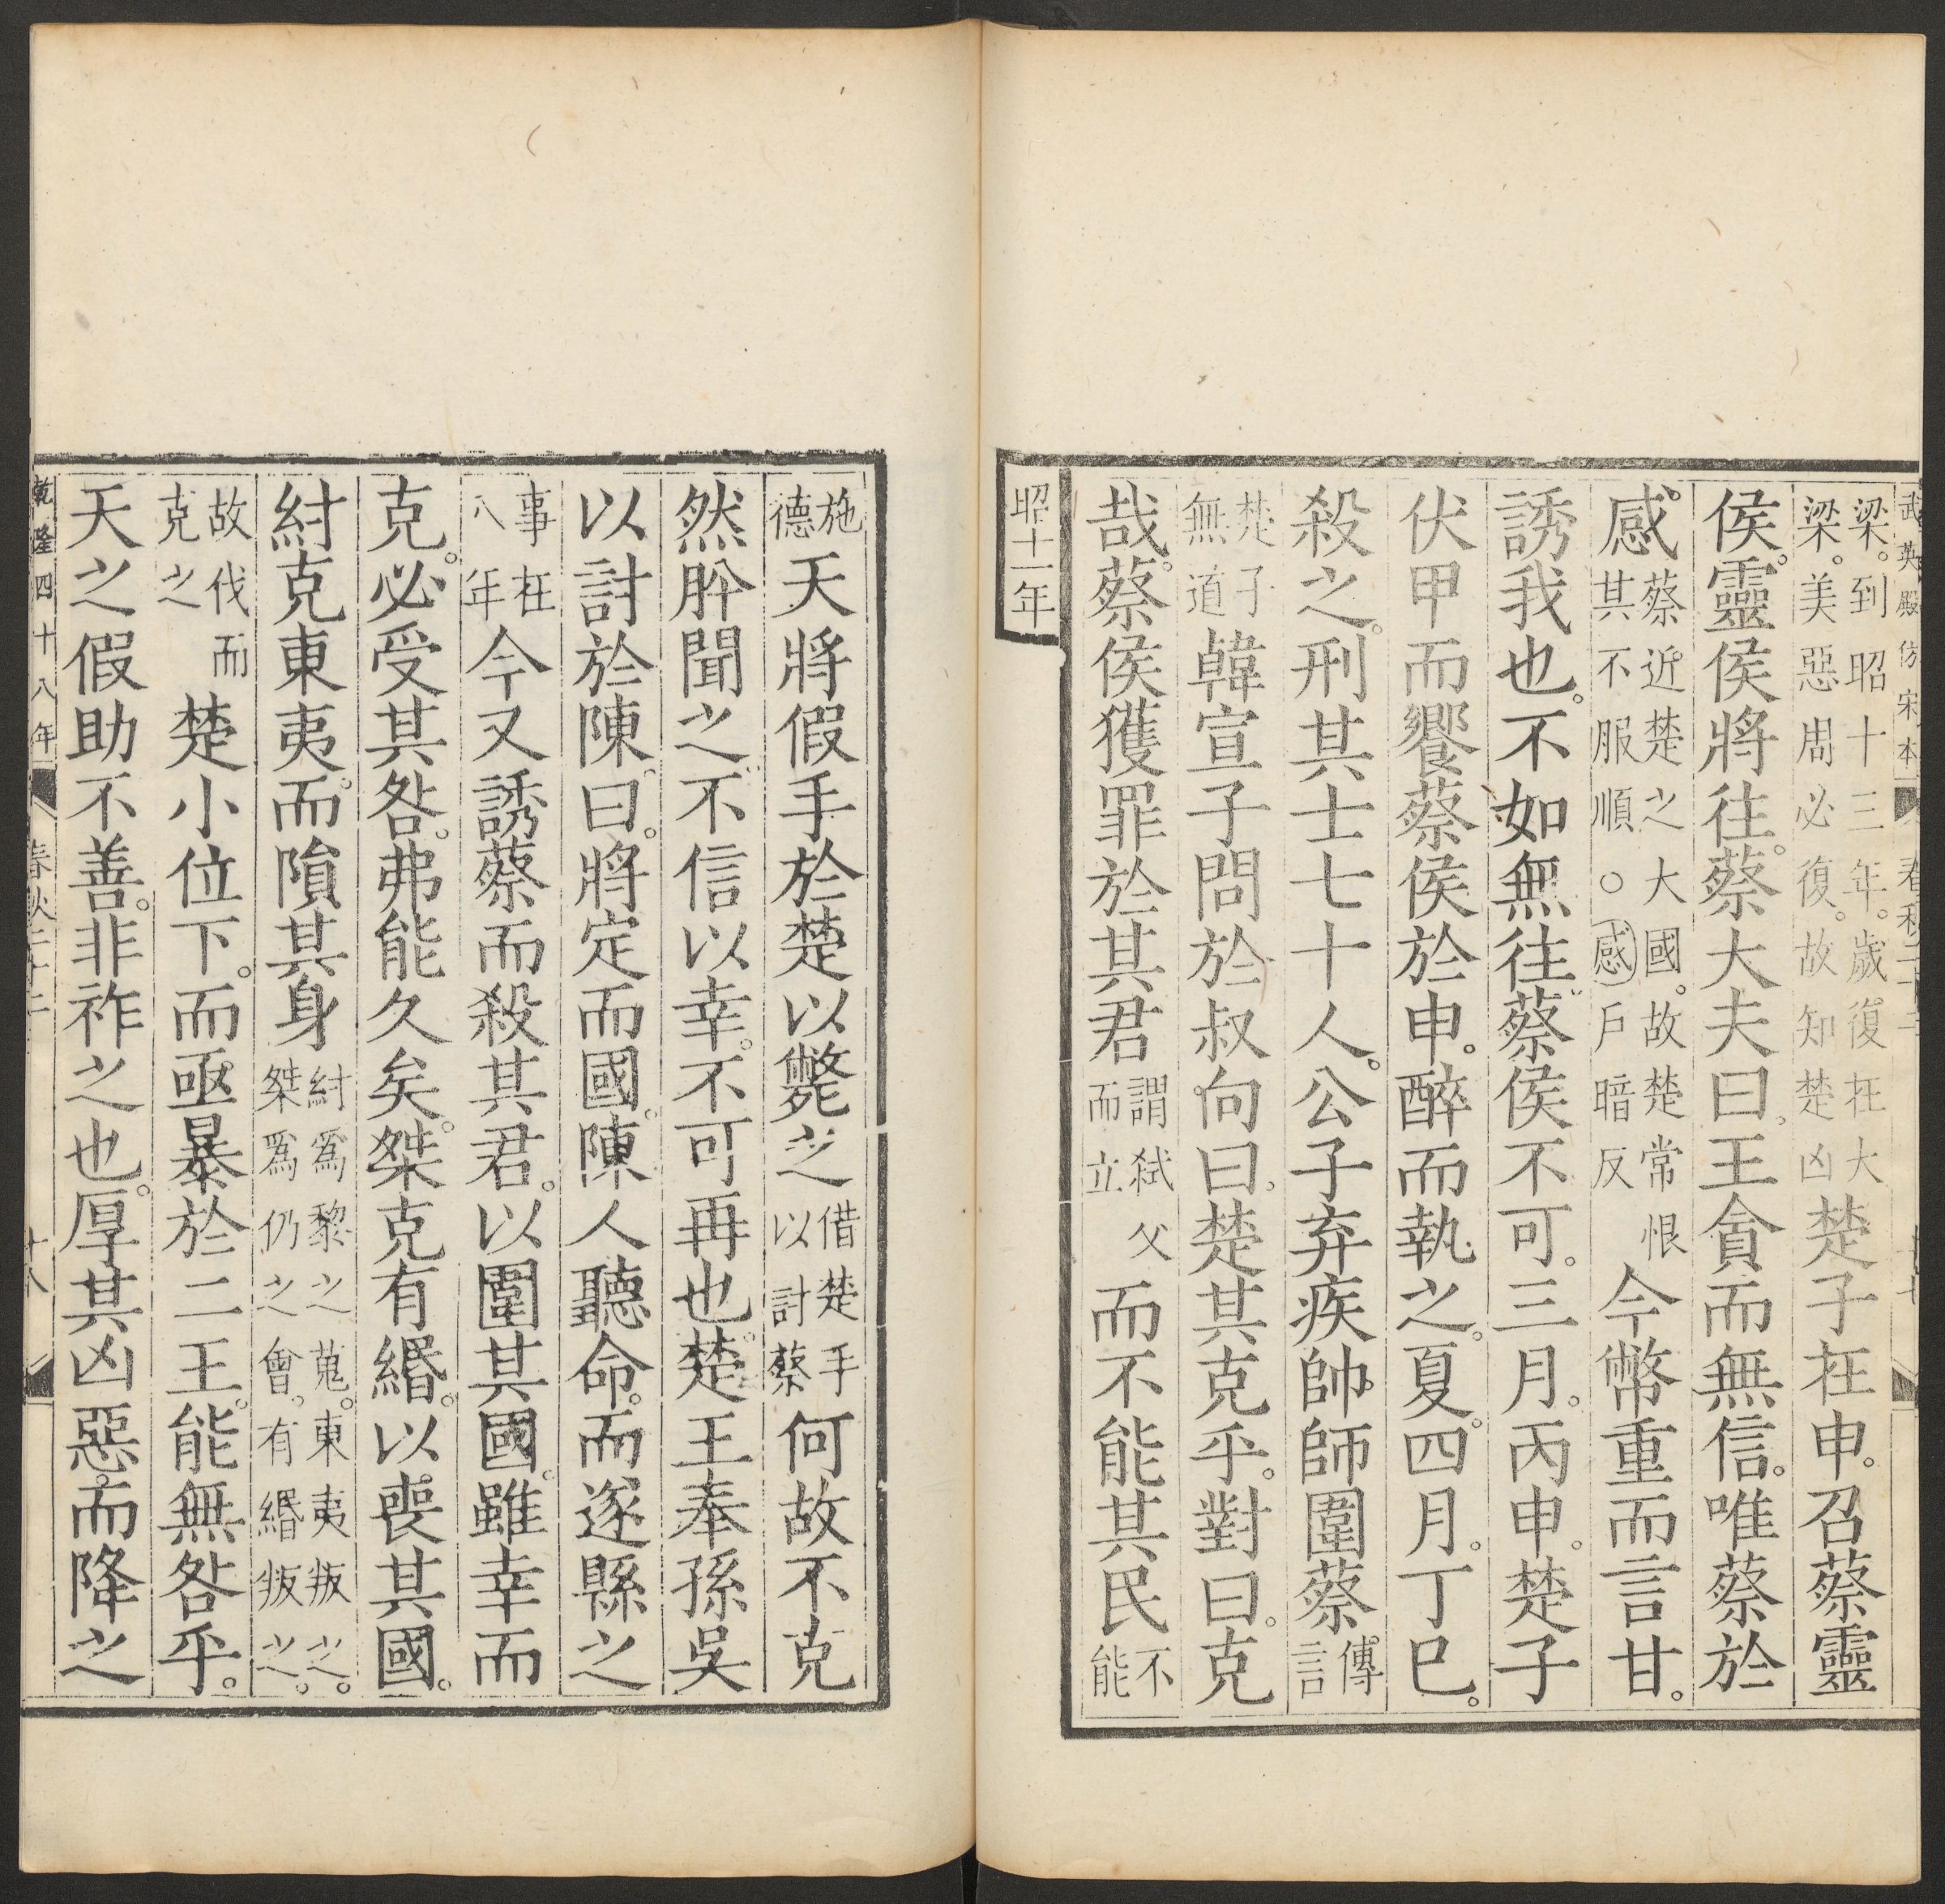 武英殿仿宋本 春秋二十二 十七
梁。到昭十三年。歲復在大
梁。美惡周必復。故知楚凶
楚子在申。召蔡靈
侯。靈侯將往。蔡大夫曰。王貪而無信。唯蔡於
感。
蔡近楚之大國。故楚常恨
其不服順○感戶暗反
今幣重而言甘。
誘我也。不如無往。蔡侯不可。三月。丙申。楚子
伏甲而饗蔡侯於申。醉而執之。夏。四月。丁巳。
殺之。刑其士七十人。公子弃疾帥師圍蔡
傳
言
楚子
無道
韓宣子問於叔向曰。楚其克乎。對曰。克
哉。蔡侯獲罪於其君
謂弒父
而立
而不能其民
不
能
昭十一年
施
德
天將假手於楚以斃之
借楚手
以討蔡
何故不克
然肸聞之。不信以幸。不可再也。楚王奉孫吳
以討於陳。曰。將定而國。陳人聽命。而遂縣之
事在
八年
今又誘蔡而殺其君。以圍其國。雖幸而
克。必受其咎。弗能久矣。桀克有緡。以喪其國。
紂克東夷。而隕其身
紂爲黎之蒐。東夷叛之。
桀爲仍之會。有緡叛之。
故伐而
克之
楚小位下。而亟暴於二王。能無咎乎。
天之假助不善。非祚之也。厚其凶惡。而降之
乾隆四十八年 春秋二十二 十八